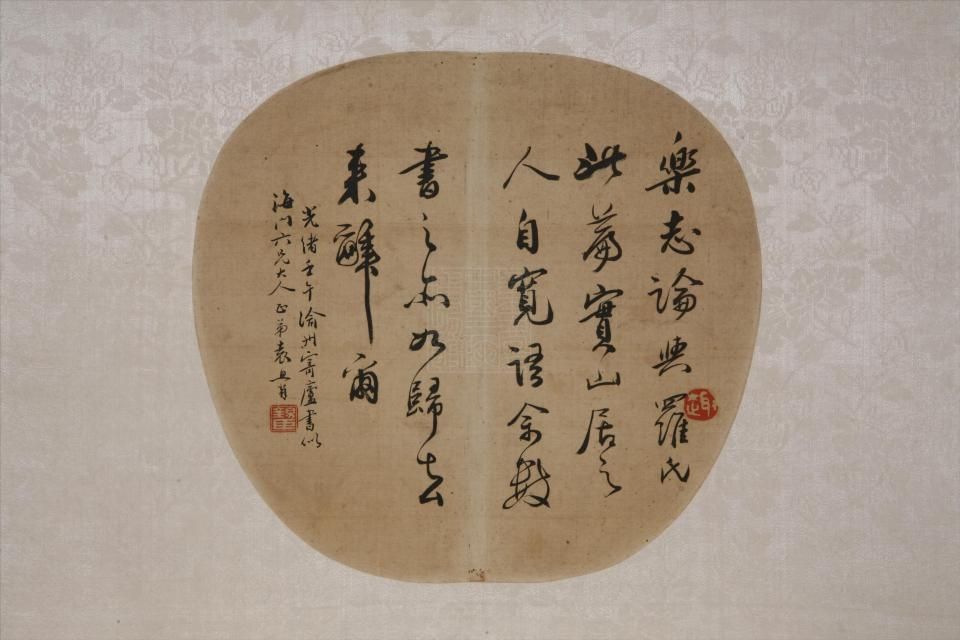 樂志論與羅氏
此篇實山居之
人自寬語余數
書之亦如歸去
來辭爾
光緒壬午渝州寄廬書似
海門六兄大人正弟袁